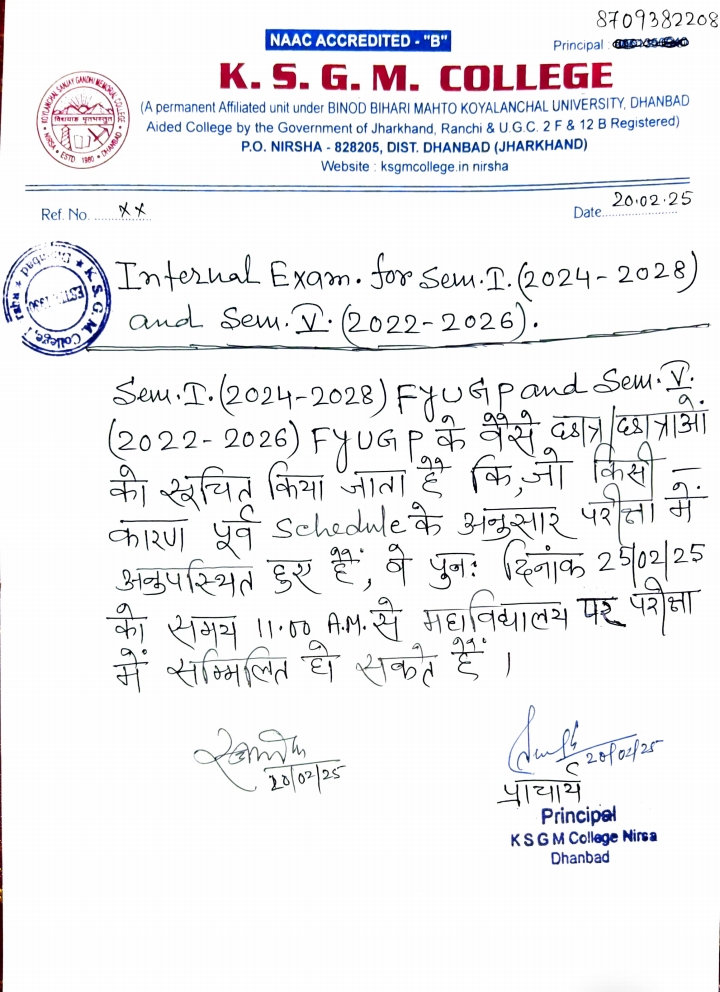 8709382208
NAAC ACCREDITED - "B"
Principal :
K. S. G. M. COLLEGE
(A permanent Affiliated unit under BINOD BIHARI MAHTO KOYALANCHAL UNIVERSITY, DHANBAD
Aided College by the Government of Jharkhand, Ranchi & U.G.C. 2 F & 12 B Registered)
P.O. NIRSHA - 828205, DIST. DHANBAD (JHARKHAND)
Website : ksgmcollege.in nirsha
Ref. No. ...xx...
Date...20.02.25
Internal Exam. for Sem. I. (2024-2028)
and Sem. V. (2022-2026).
Sem. I. (2024-2028) FYUGP and Sem. V.
(2022-2026) FYUGP के वैसे छात्र/छात्राओं
को सूचित किया जाता है कि, जो किसी
कारण पूर्व Schedule के अनुसार परीक्षा में
अनुपस्थित हुए हैं, वे पुनः दिनांक 25/02/25
को समय 11.00 A.M. से महाविद्यालय पर परीक्षा
में सम्मिलित हो सकते हैं ।
20/02/25
20/02/25
प्राचार्य
Principal
K S G M College Nirsa
Dhanbad